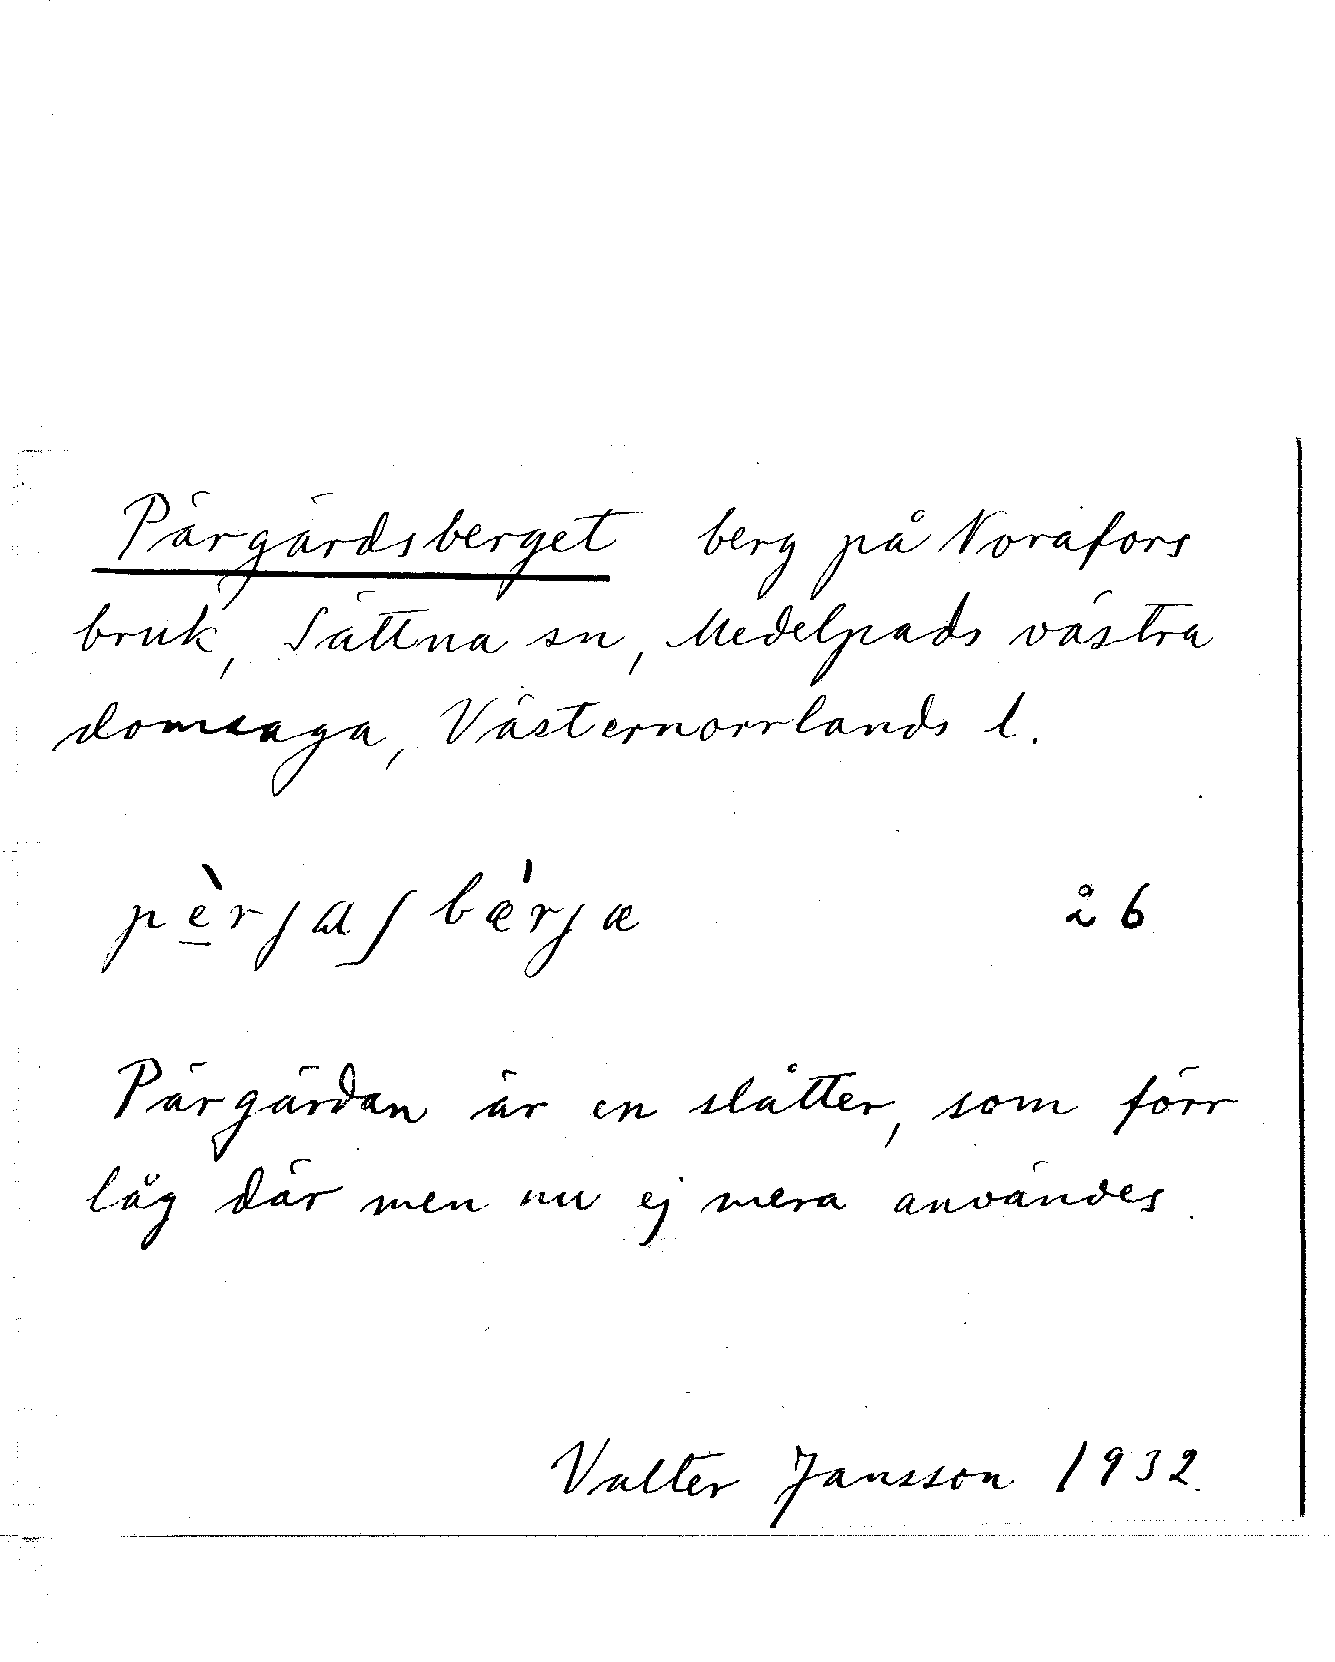 Pärgärdsberget berg på Norafors
bruk, Sättna sn, Medelpads västra
domsaga, Västernorrlands l.
pè̱rjaʃbæ̀rjæ å 6
Pärgärdan är en slåtter, som förr
låg där men nu ej mera användes.
Valter Jansson 1932.